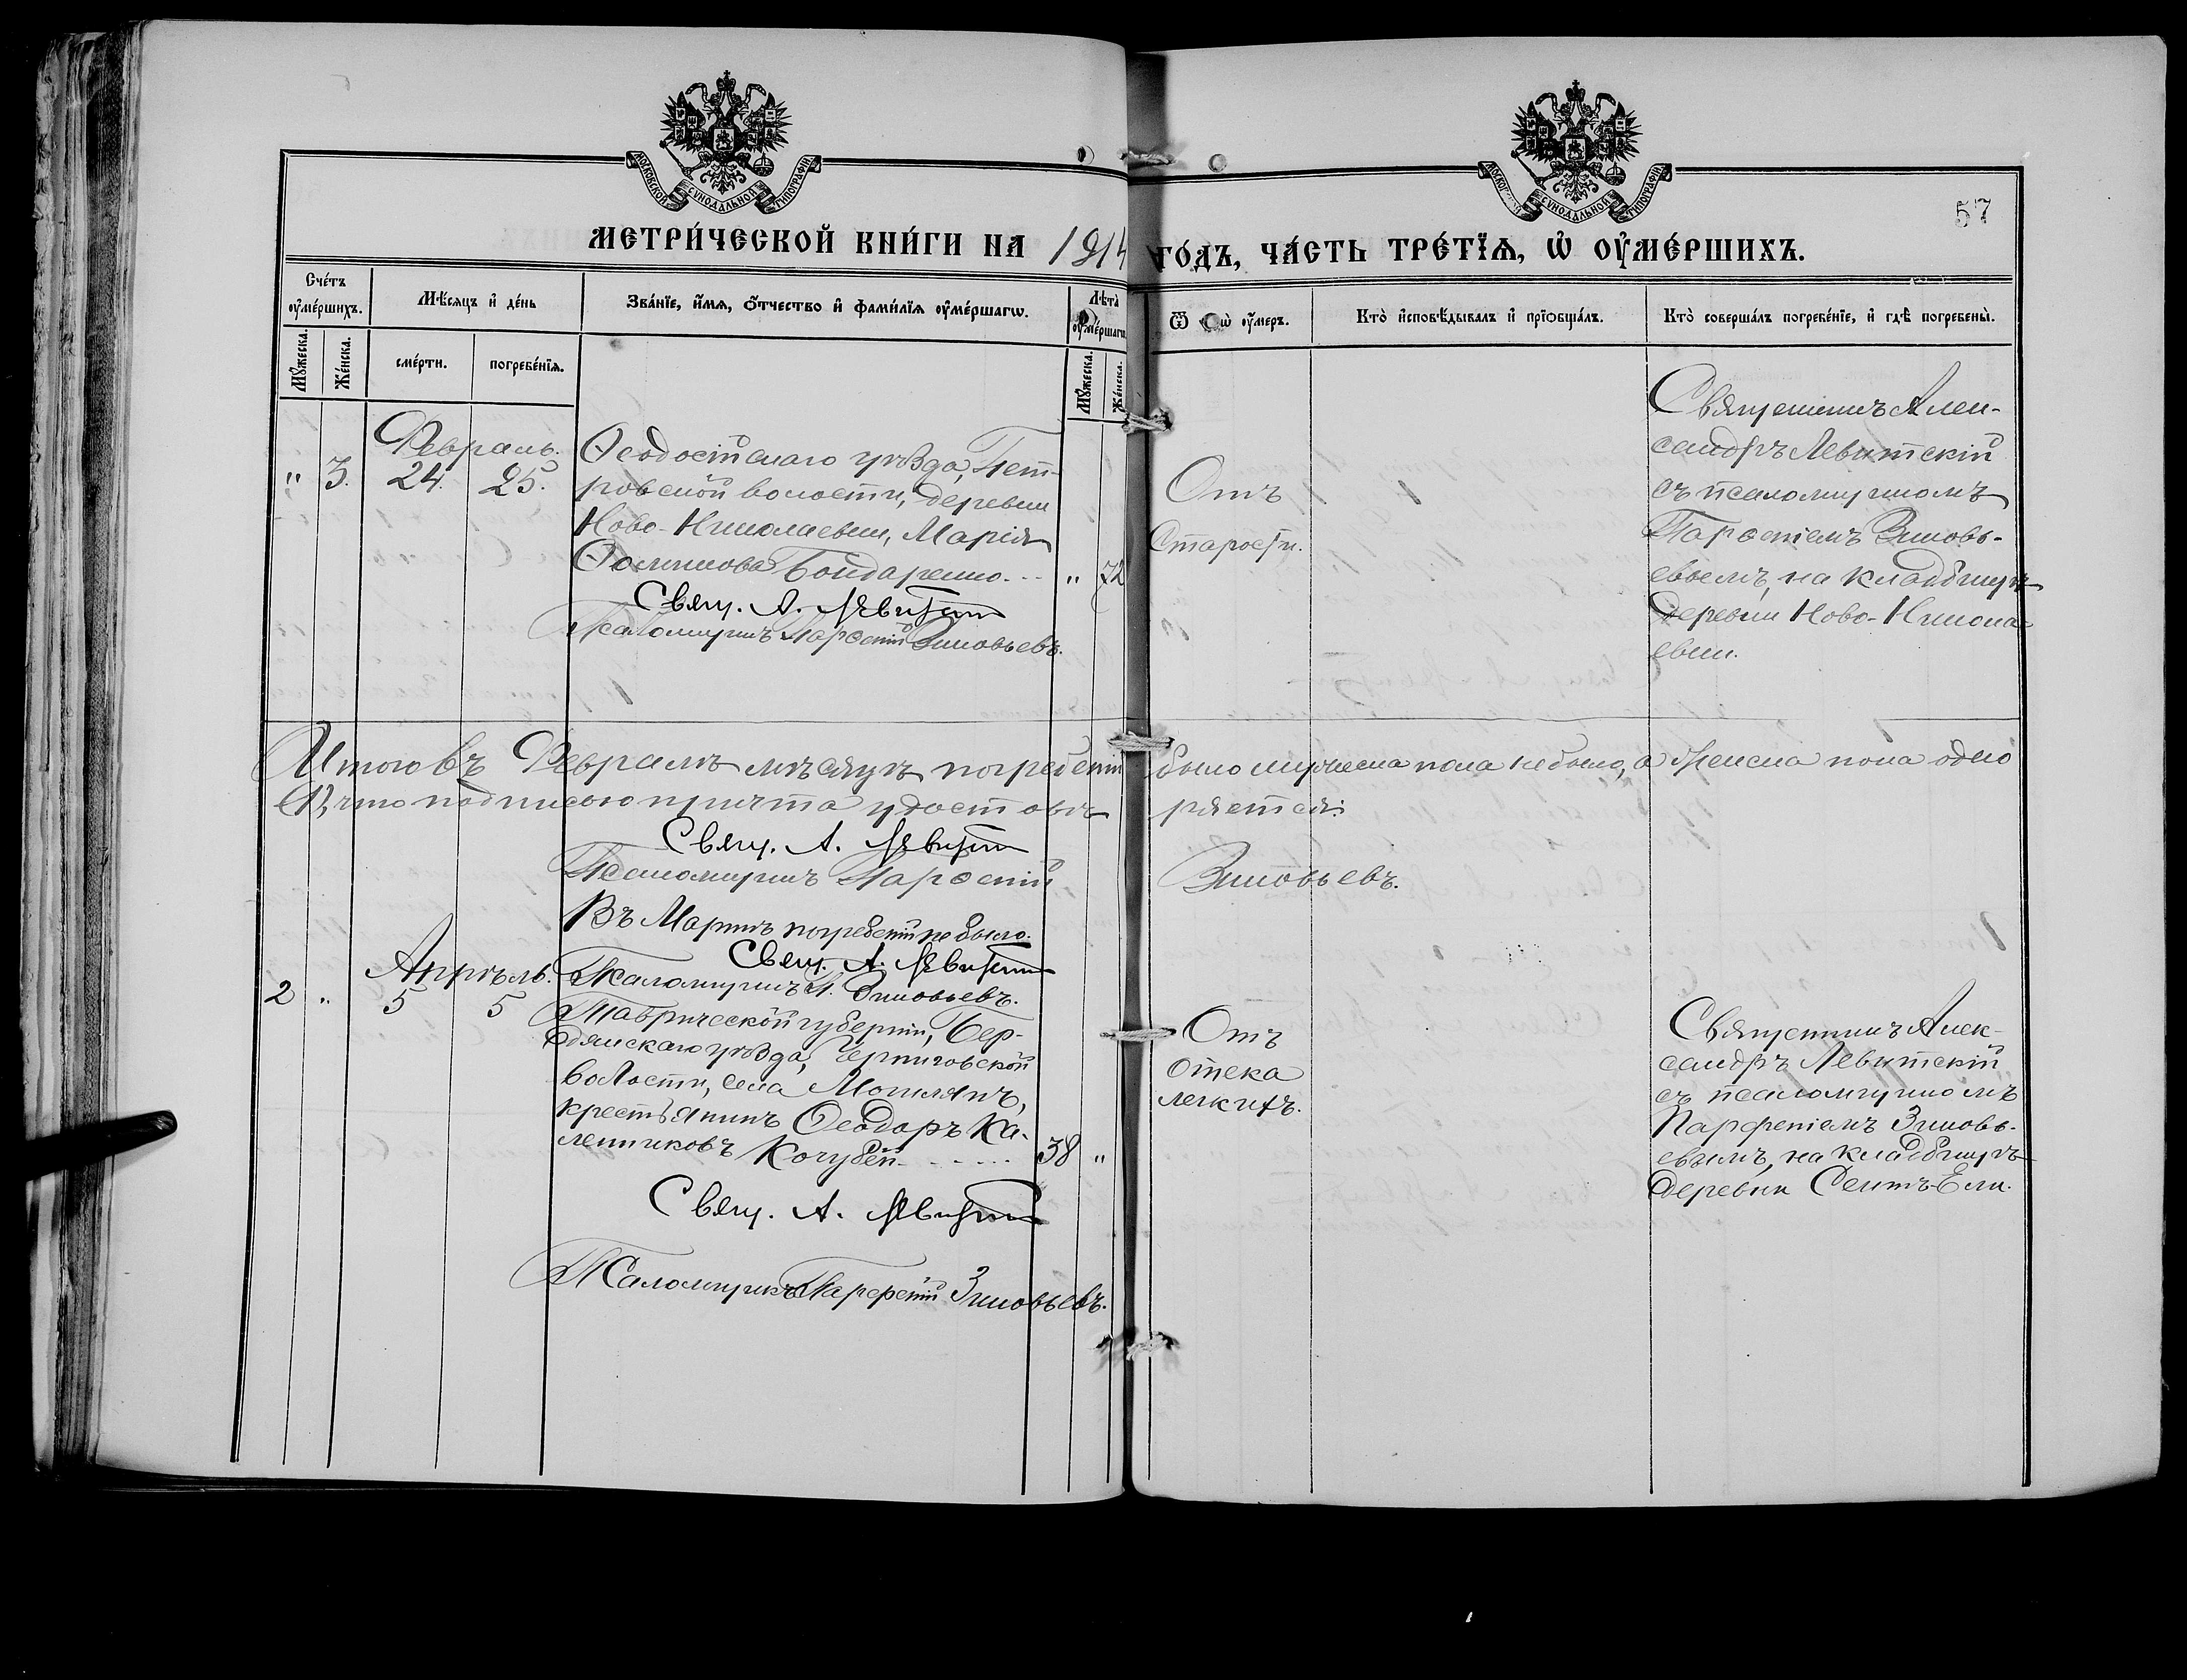 МОСКОВСКОЙ СУНОДАЛЬНОЙ ТИПОГРАФІИ
МОСКОВСКОЙ СУНОДАЛЬНОЙ ТИПОГРАФІИ
57
МЕТРИ́ЧЕСКОЙ КНИ́ГИ НА 1914 ГО́ДЪ, ЧА́СТЬ ТРЕ́ТЇѦ, Ѽ ОУ҆МЕ́РШИХЪ.
Сче́тъ оу҆ме́ршихъ.
Мѣ́сяцъ и҆ де́нь
Зва́нїе, и҆́мѧ, ѻ҆́тчество и҆ фами́лїѧ оу҆ме́ршагѡ.
Лѣ́та оу҆ме́ршагѡ
Ѿ чегѡ̀ оу҆́меръ.
Кто̀ и҆сповѣ́дывалъ и҆ прїѻбща́лъ.
Кто̀ соверша́лъ погребе́нїе, и҆ гдѣ̀ погребены̀.
Мꙋ́жеска.
Же́нска.
сме́рти.
погребе́нїѧ.
Мꙋ́жеска.
Же́нска.
Февраль.
" 3. 24. 25.
Ѳеодосійскаго уѣзда, Пет-
ровской волости, деревни
Ново-Николаевки, Марія
Ѳоминова Бондаренко. -- " 72
Свящ. А. Левитскій
Псаломщикъ Парѳеній Зиновьевъ.
Отъ
старости.
Священникъ Алек-
сандръ Левитскій
съ псаломщикомъ
Парѳеніемъ Зиновь-
евымъ, на кладбищѣ
деревни Ново-Никола-
евки.
Итого въ Февралѣ мѣсяцѣ погребеній было мужеска пола не было, а женска пола одно
В, что подписью причта удостовѣряется:
Свящ. А. Левитскій
Псаломщикъ Парѳеній Зиновьевъ.
Въ Мартѣ погребеній не было.
Свящ. А. Левитскій
Псаломщикъ П. Зиновьевъ.
Апрѣль.
2 " 5 5
Таврической губерніи, Бер-
дянскаго уѣзда, Черниговской
волости, села Могилянъ,
крестьянинъ Ѳеодоръ Ка-
ленниковъ Кочубей - - - - - 38 "
Свящ. А. Левитскій
Псаломщикъ Парфеній Зиновьевъ.
Отъ
отека
легкихъ.
Священникъ Алек-
сандръ Левитскій
съ псаломщикомъ
Парфеніемъ Зиновь-
евымъ, на кладбищѣ
деревни Сеитъ-Ели.